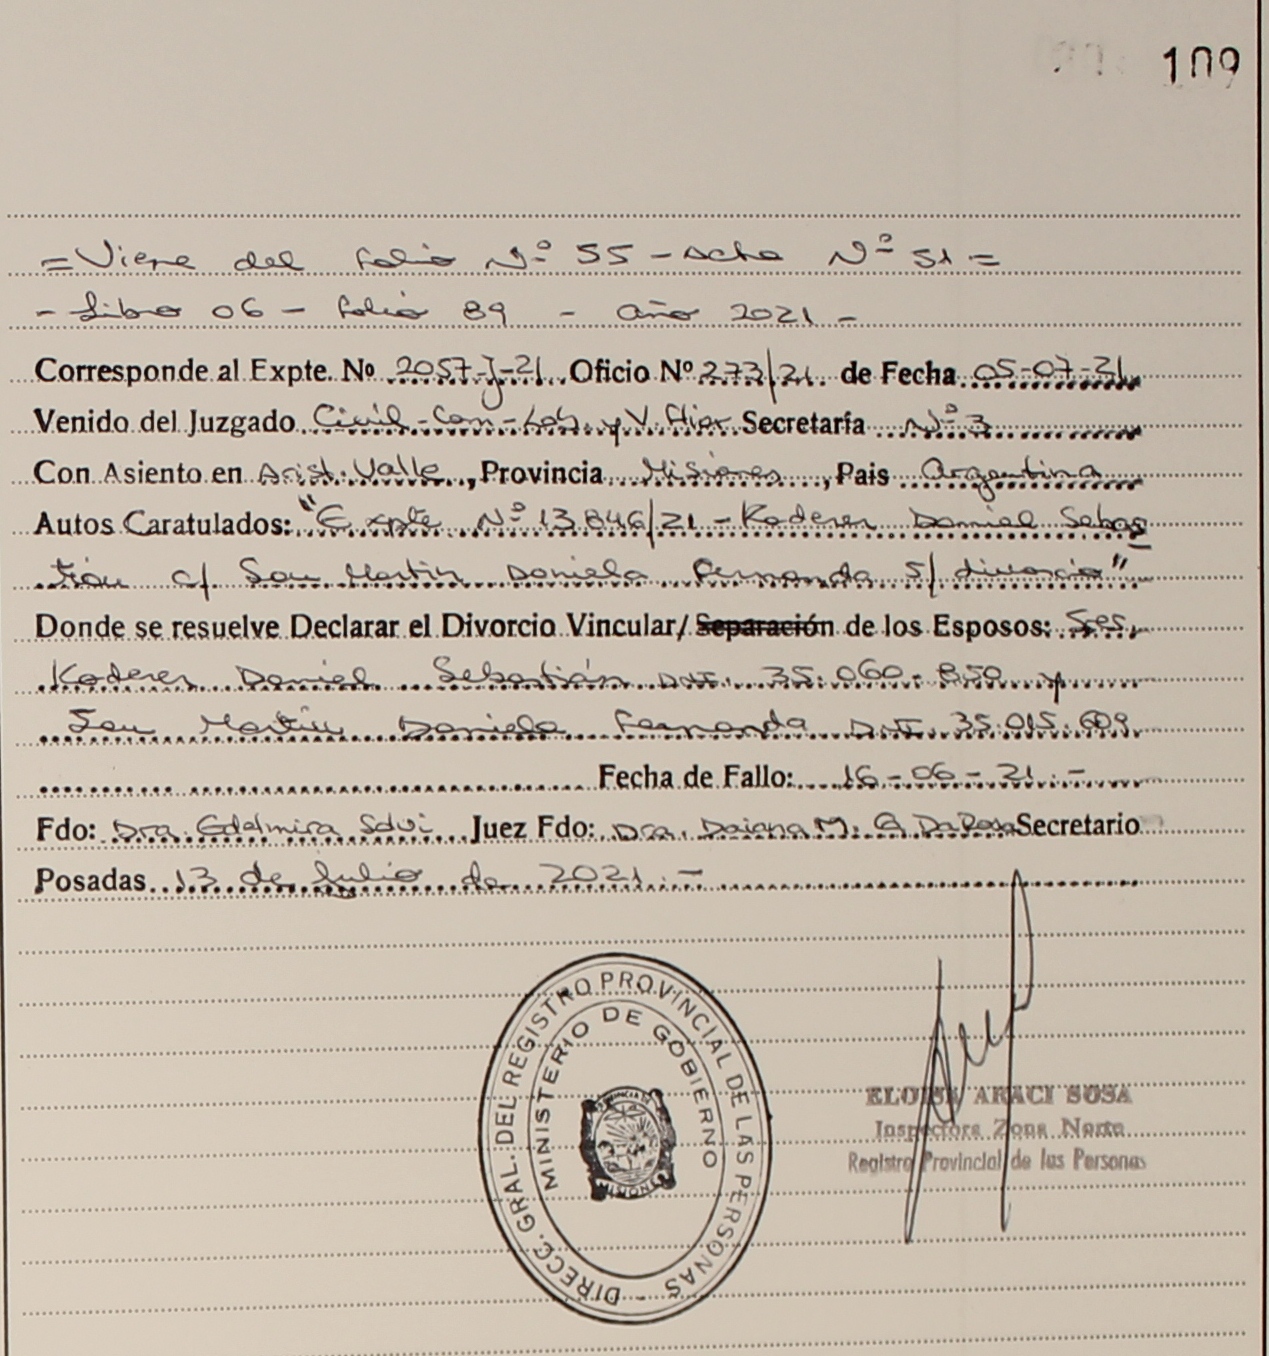 109
= Viene del folio Nº 55 - Acta Nº 51 =
- Libro 06 - folio 89 - año 2021 -
Corresponde al Expte. Nº 2057-J-21 Oficio Nº 273/21 de Fecha 05-07-21
Venido del Juzgado Civil-Com-Lab. y V. Fliar Secretaría Nº 3
Con Asiento en Arist. Valle, Provincia Misiones, Pais Argentina
Autos Caratulados: "Expte Nº 13846/21 - Kaderer Daniel Sebas
tián c/ San Martin Daniela Fernanda s/ divorcio"
Donde se resuelve Declarar el Divorcio Vincular/ Separación de los Esposos: Sres.
Kaderer Daniel Sebastián DNI. 35.060.850 y
San Martin Daniela Fernanda DNI. 35.015.609
Fecha de Fallo: 16-06-21.-
Fdo: Dra. Edelmira Juez Fdo: Dra. Daiana M. G. Da Rosa Secretario
Posadas 13 de Julio de 2021.-
DIRECC. GRAL. DEL REGISTRO PROVINCIAL DE LAS PERSONAS -
MINISTERIO DE GOBIERNO
PROVINCIA DE
MISIONES
ELOISA ARACI SOSA
Inspectora Zona Norte
Registro Provincial de las Personas